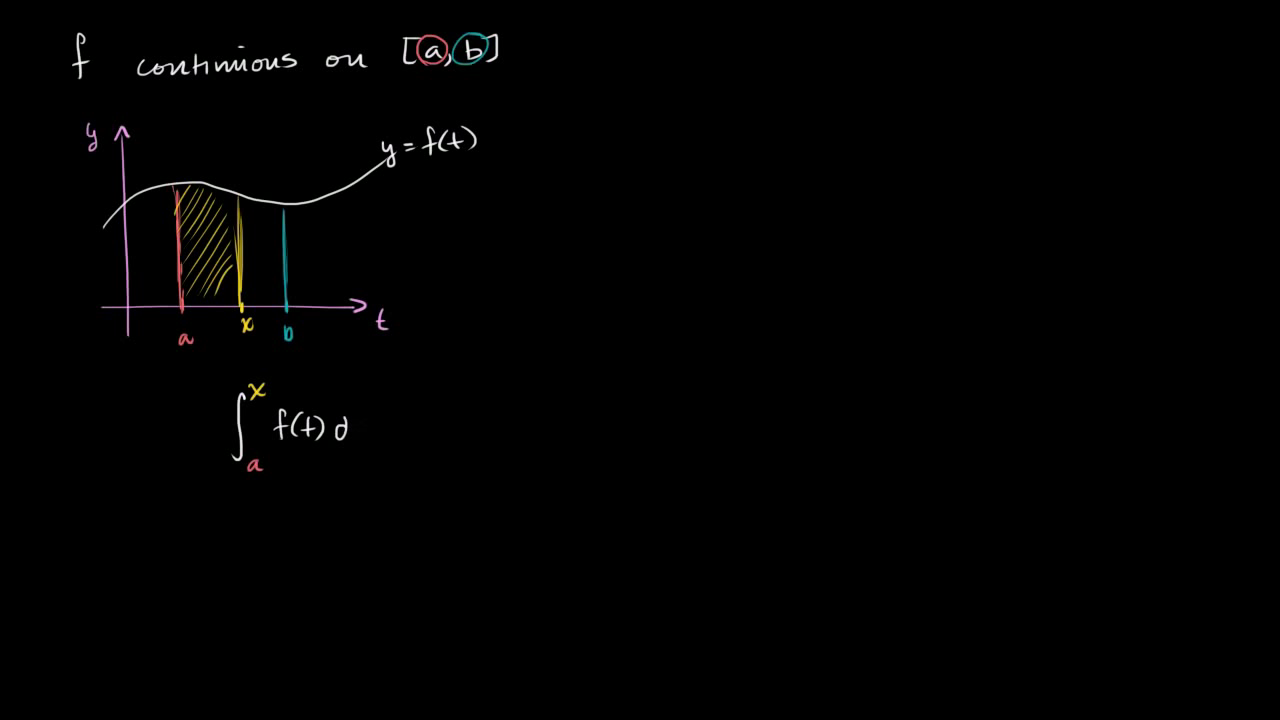 f continuous on [a, b]
y
y = f(t)
a
x
b
t
x
∫ f(t) d
a